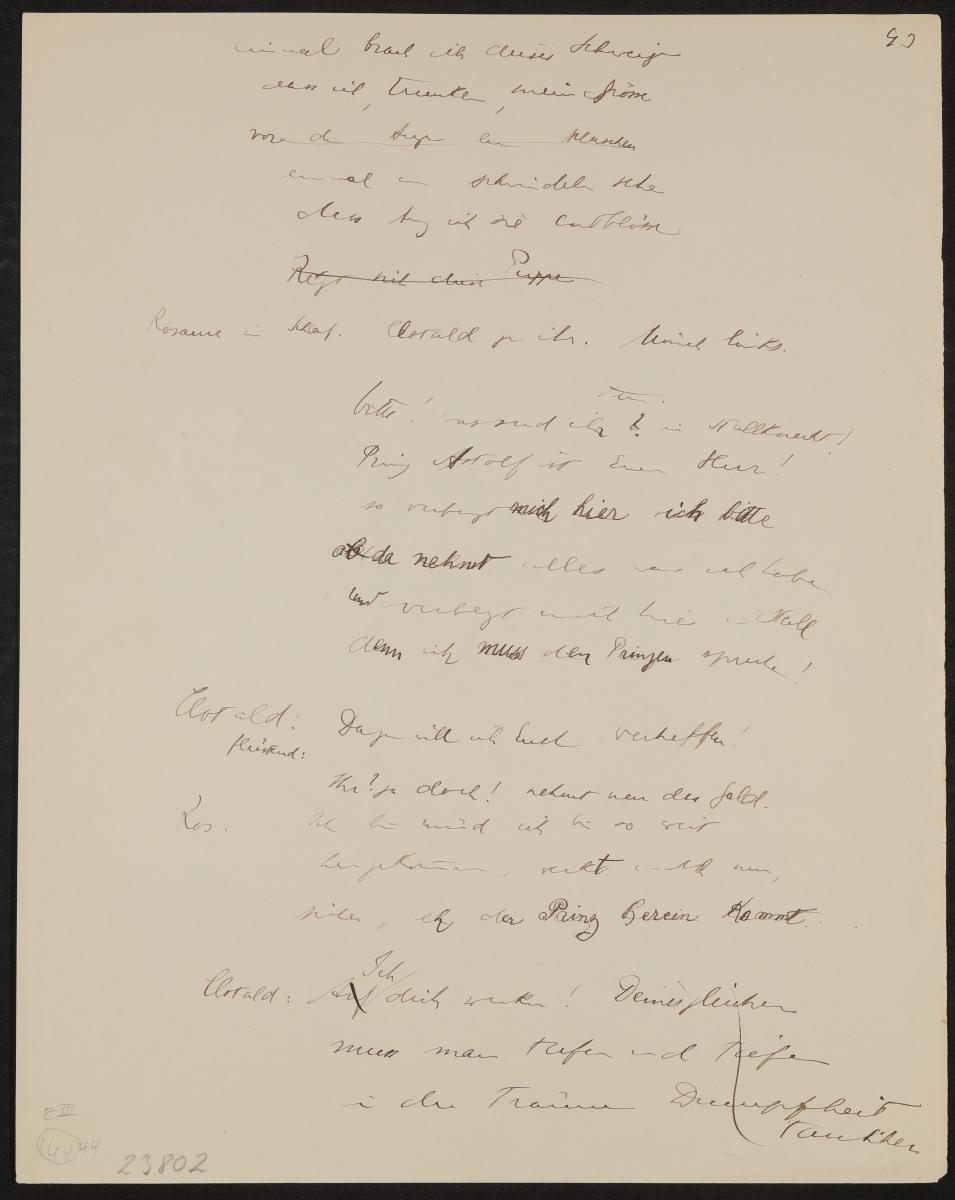 93
einmal brach ich dieses Schweigen
dass ich, trunken, meine Grösse
vor den Augen
einmal schwindeln sehe
dass ich sie entblösse
mit dieser Puppe
Rosaura im Schlaf. Clotald zu ihr. Mönch links.
bitte! was seid ihr? ein Stallknecht!
Prinz Astolf ist Euer Herr!
so verbergt mich hier ich bitte
da nehmt alles was ich habe
und verbergt mich hier im Stall
denn ich muss den Prinzen sprechen!
Clotald: Dazu will ich Euch verhelfen!
flüsternd:
Ihr? ja doch! nehmt nur das Geld.
Ros. Ich bin müd ich bin so weit
hergekommen, weckt mich nur,
eh der Prinz herein kommt.
Ich
Clotald: dich wecken! Deinesgleichen
muss man tiefer und tiefer
in der Träume Dumpfheit
tauchen
E III
44
23802